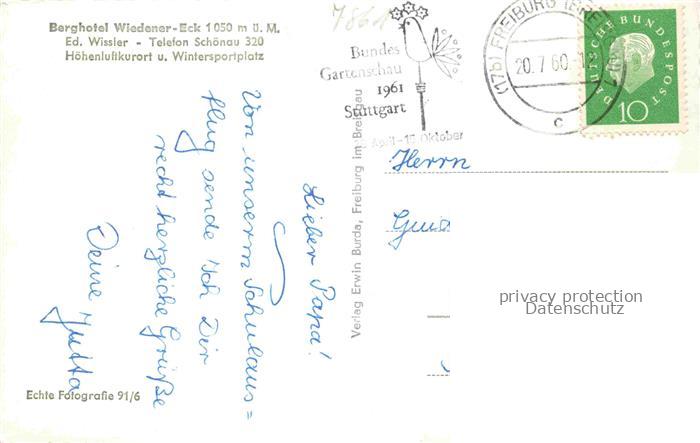 Berghotel Wiedener-Eck 1050 m ü. M.
Ed. Wissler - Telefon Schönau 320
Höhenluftkurort u. Wintersportplatz
7861
Bundes
Gartenschau
1961
Stuttgart
April - 1 Oktober
(17b) FREIBURG (BREI
20.7.60.-1
c
DEUTSCHE BUNDESPOST
10
Lieber Papa!
Von unserm Schulaus=
flug sende ich Dir
recht herzliche Grüße
Deine Jutta
Verlag Erwin Burda, Freiburg im Breisgau
Herrn
privacy protection
Datenschutz
Echte Fotografie 91/6